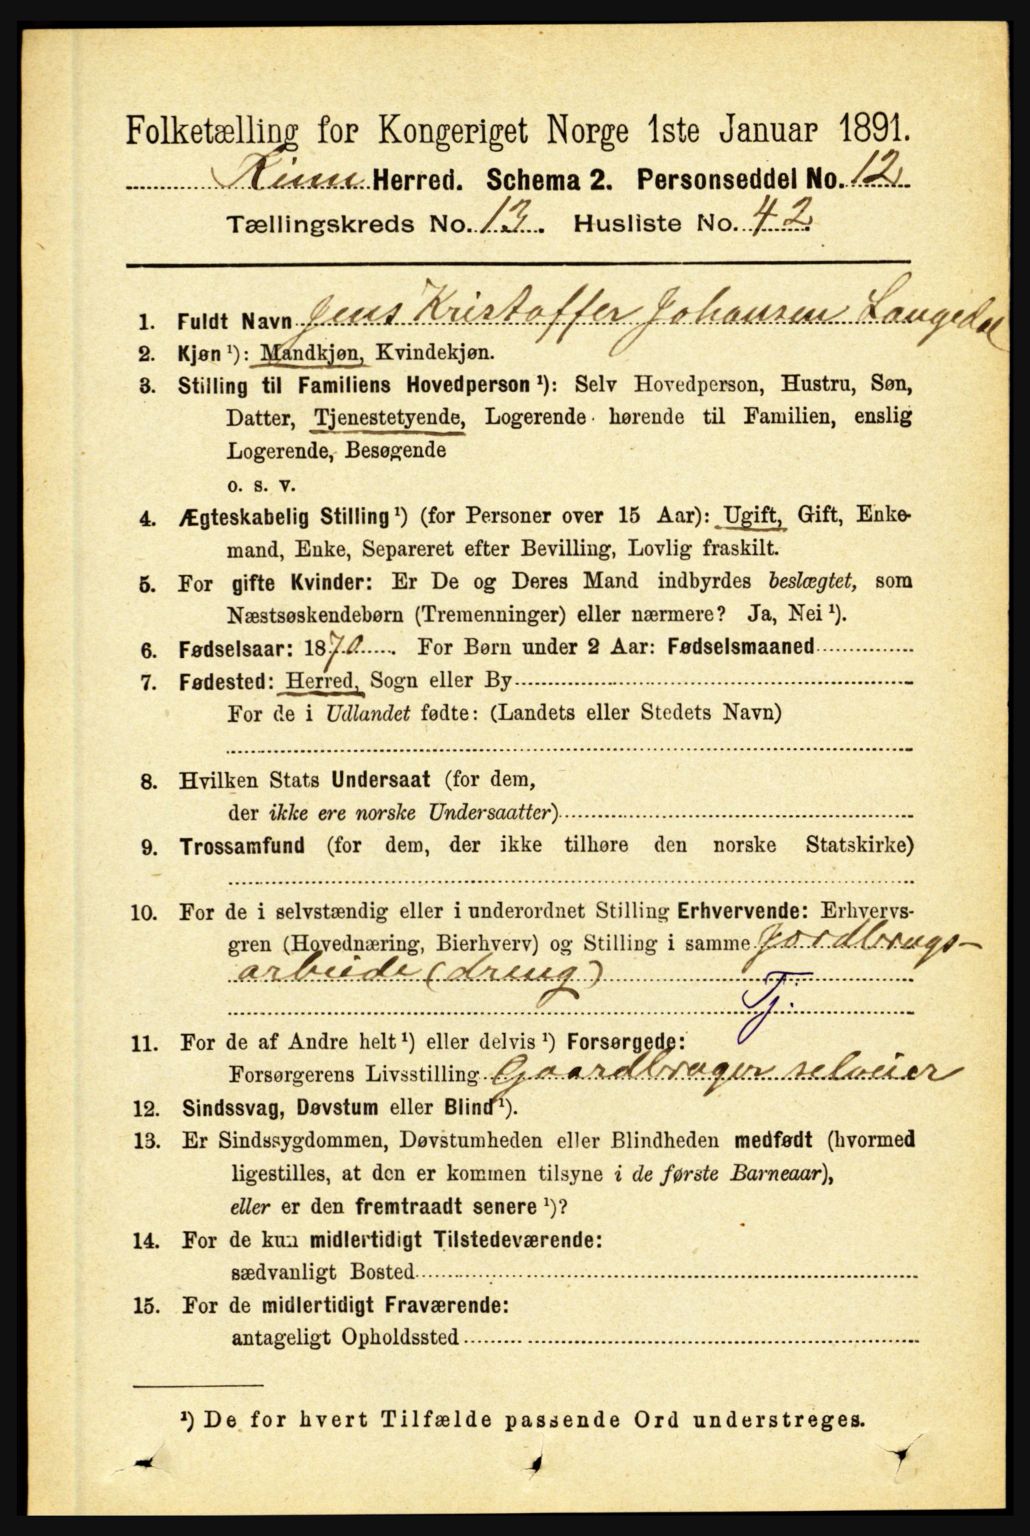 Folketælling for Kongeriget Norge 1ste Januar 1891.
Kinn Herred. Schema 2. Personseddel No. 12
Tællingskreds No. 13. Husliste No. 42
1. Fuldt Navn Jens Kristoffer Johansen Langedal
2. Kjøn ¹): Mandkjøn, Kvindekjøn.
3. Stilling til Familiens Hovedperson ¹): Selv Hovedperson, Hustru, Søn,
Datter, Tjenestetyende, Logerende hørende til Familien, enslig
Logerende, Besøgende
o. s. v.
4. Ægteskabelig Stilling ¹) (for Personer over 15 Aar): Ugift, Gift, Enke-
mand, Enke, Separeret efter Bevilling, Lovlig fraskilt.
5. For gifte Kvinder: Er De og Deres Mand indbyrdes beslægtet, som
Næstsøskendebørn (Tremenninger) eller nærmere? Ja, Nei ¹).
6. Fødselsaar: 1870. For Børn under 2 Aar: Fødselsmaaned
7. Fødested: Herred, Sogn eller By
For de i Udlandet fødte: (Landets eller Stedets Navn)
8. Hvilken Stats Undersaat (for dem,
der ikke ere norske Undersaatter)
9. Trossamfund (for dem, der ikke tilhøre den norske Statskirke)
10. For de i selvstændig eller i underordnet Stilling Erhvervende: Erhvervs-
gren (Hovednæring, Bierhverv) og Stilling i samme Jordbrugs-
arbeide (dreng)
Tj.
11. For de af Andre helt ¹) eller delvis ¹) Forsørgede:
Forsørgerens Livsstilling Gaardbruger selveier
12. Sindssvag, Døvstum eller Blind ¹).
13. Er Sindssygdommen, Døvstumheden eller Blindheden medfødt (hvormed
ligestilles, at den er kommen tilsyne i de første Barneaar),
eller er den fremtraadt senere ¹)?
14. For de kun midlertidigt Tilstedeværende:
sædvanligt Bosted
15. For de midlertidigt Fraværende:
antageligt Opholdssted
¹) De for hvert Tilfælde passende Ord understreges.